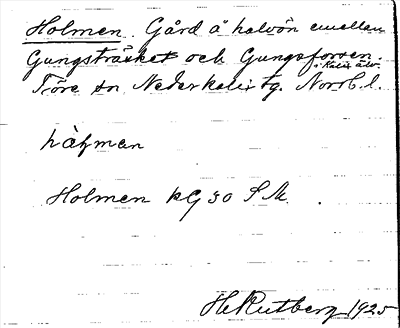 Holmen. Gård å halvön emellan
Gungsträsket och Gungsforsen.
i Kalix älv.
Töre sn, Nederkalix tg. Norrb. l.
Holmen KG 30 S.M.
H. Rutberg 1925